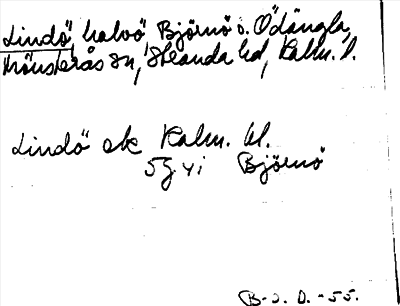 Lindö, halvö, Björnö o. Ödängla,
Mönsterås sn, Stranda hd, Kalm. l.
Lindö ek Kalm. bl.
5G yi Björnö
B-J. D. -55.